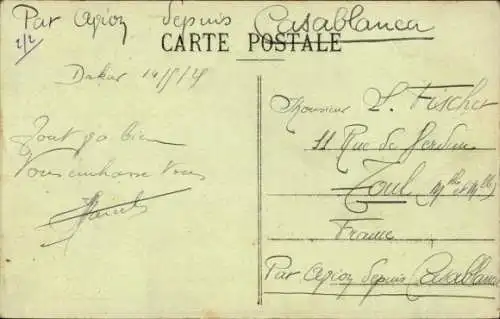 Par Avion depuis Casablanca
2/2
CARTE POSTALE
Dakar
Tout va bien
Vous embrasse tous
Marcel
Monsieur L. Fischer
11 Rue de Verdun
Toul (Mthe et Mlle)
France
Par Avion depuis Casablanca